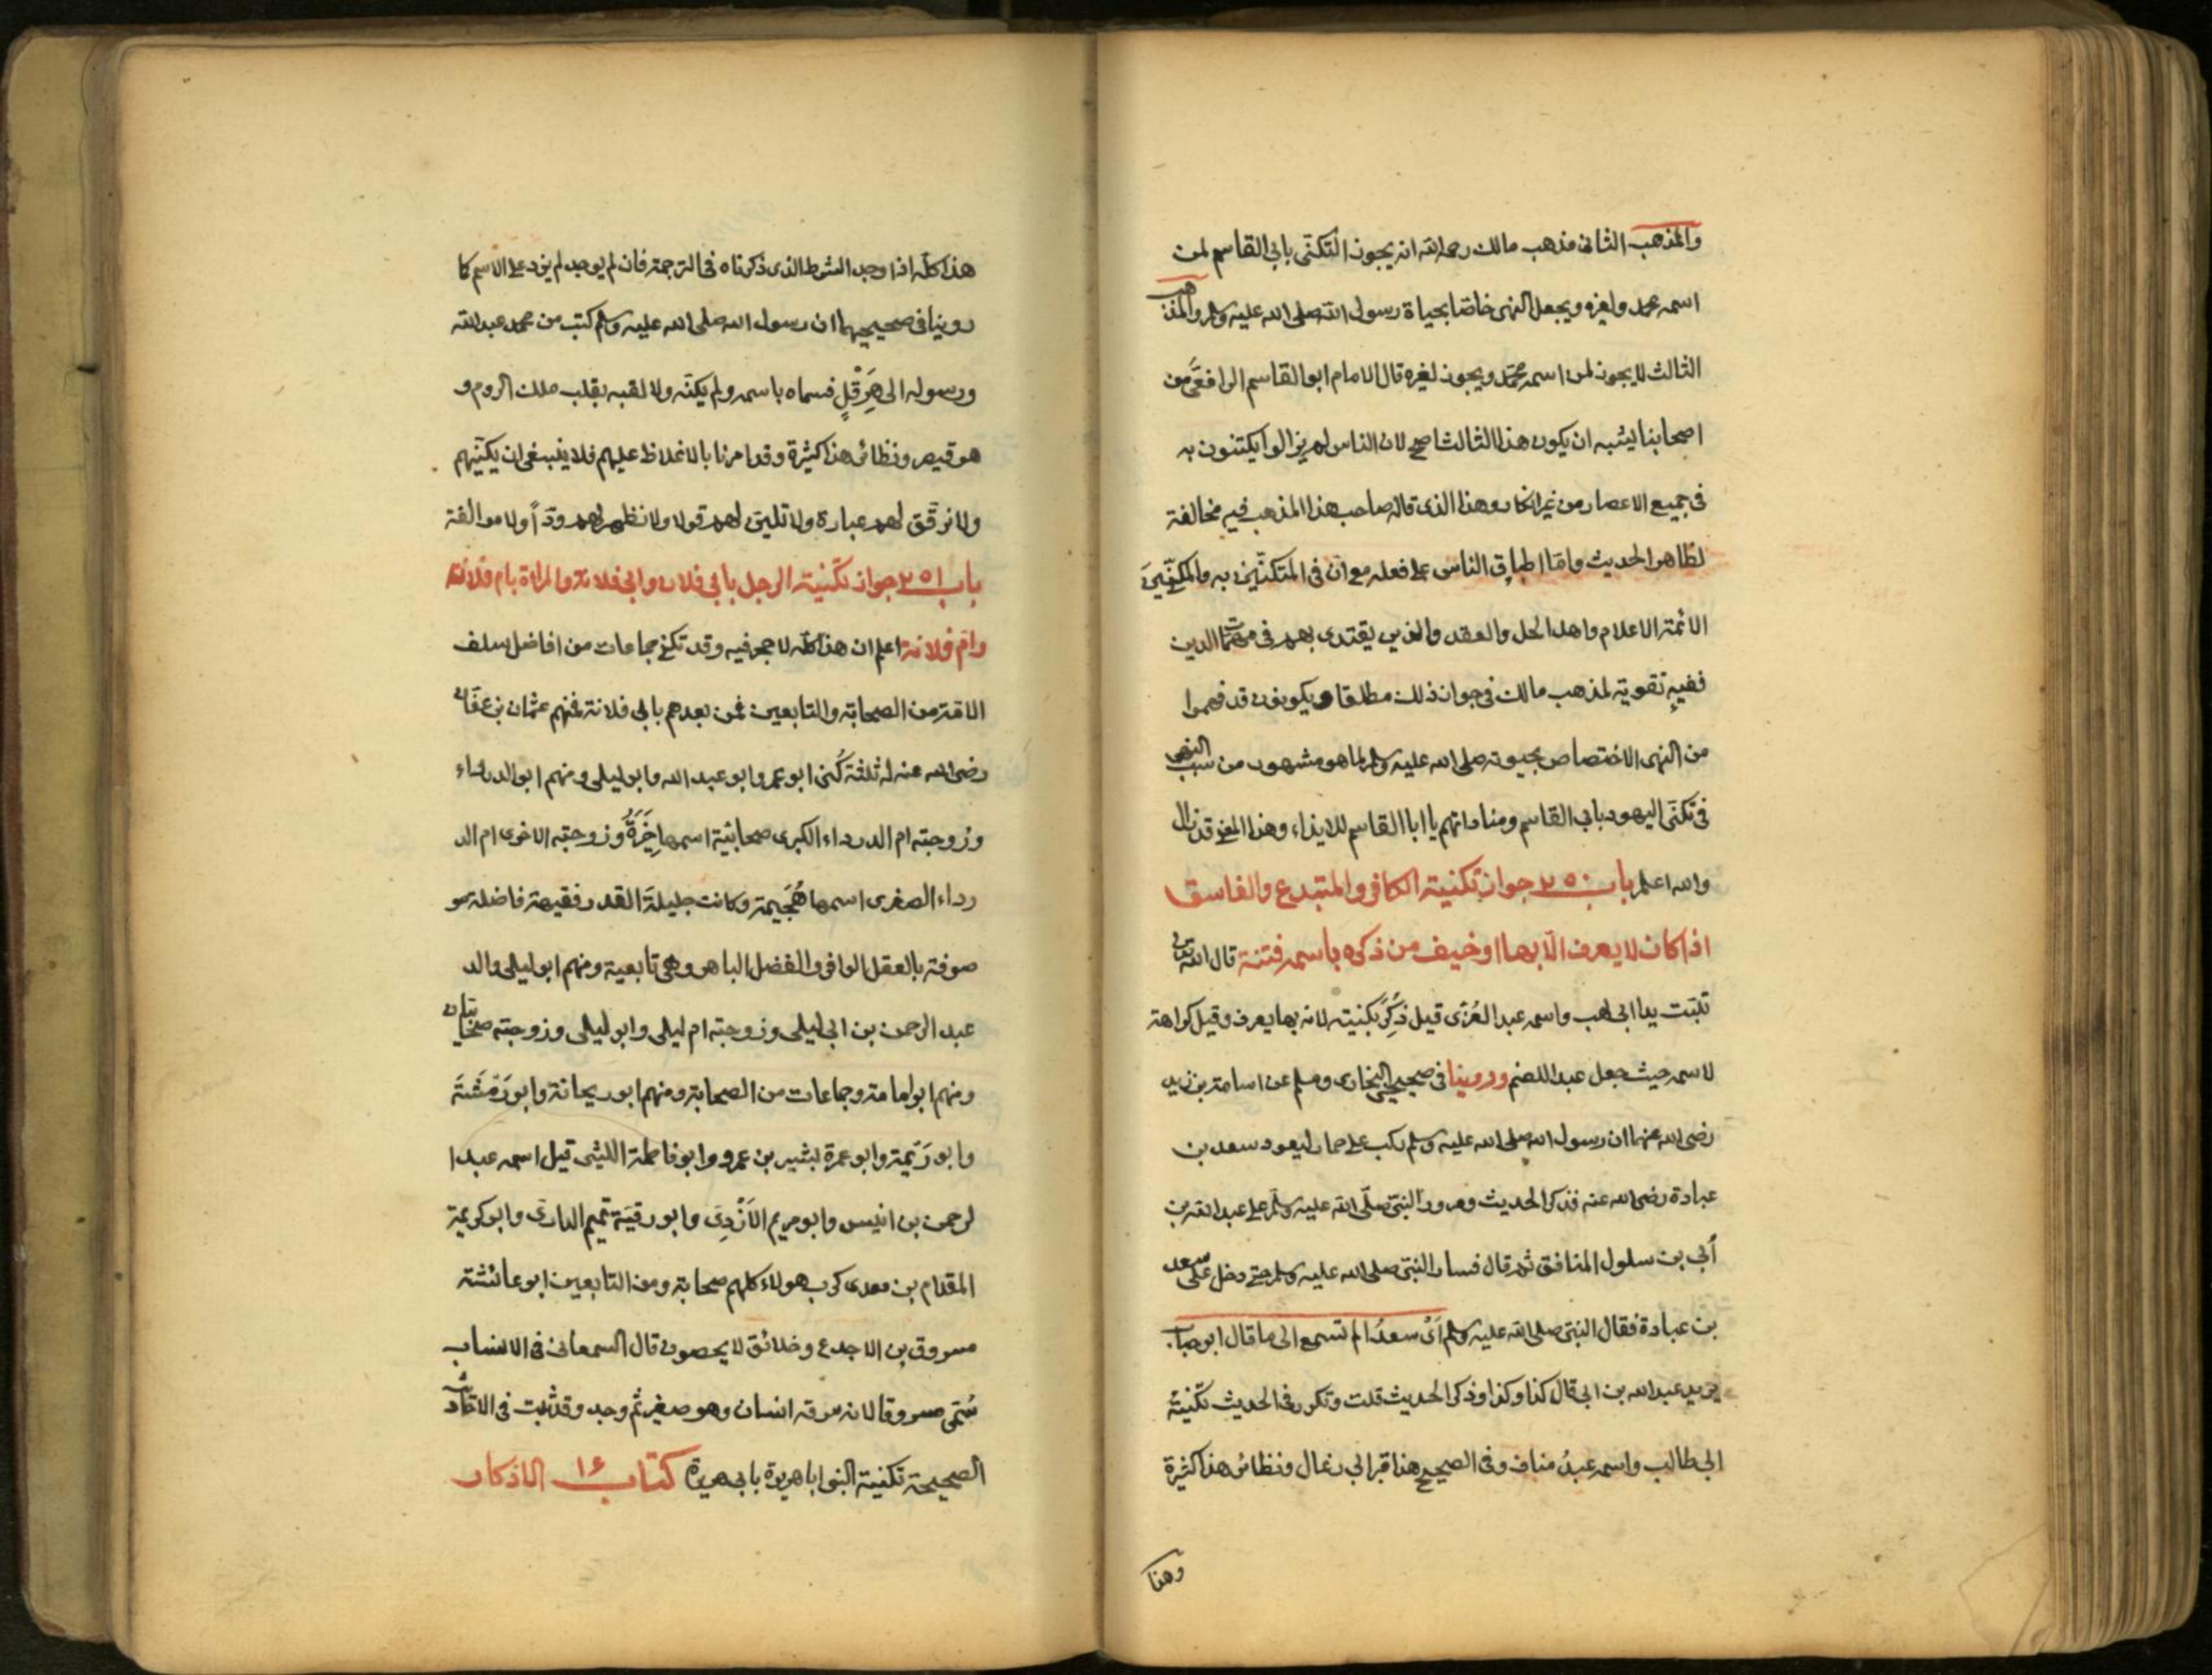 والمذهب الثانى مذهب مالك رحمه الله انه يجوز التكنّى بابى القاسم لمن
اسمه محمد ولغيره ويجعل النهى خاصّا بحياة رسول الله صلى الله عليه وسلم والمذهب
الثالث لا يجوز لمن اسمه محمّد ويجوز لغيره قال الامام ابو القاسم الرافعىّ من
اصحابنا يشبه ان يكون هذا الثالث اصح لان الناس لم يزالوا يكتنون به
فى جميع الاعصار من غير انكار وهذا الذى قاله صاحب هذا المذهب فيه مخالفة
لظاهر الحديث وامّا اطباق الناس على فعله مع انّ فى المتكنّين به والمكنّيين
الائمة الاعلام واهل الحل والعقد والذين يقتدى بهم فى مهمّات الدين
ففيه تقوية لمذهب مالك فى جواز ذلك مطلقا ويكونون قد فهموا
من النهى الاختصاص بحيوته صلى الله عليه وسلم لما هو مشهور من سبب النهى
فى تكنّى اليهود بابى القاسم ومناداتهم يا ابا القاسم للايذاء وهذا المعنى قد زال
والله اعلم باب ٢٥٠ جواز تكنية الكافر والمتبدع والفاسق
اذا كان لا يعرف الّا بها او خيف من ذكره باسمه فتنة قال الله تعالى
تبّت يدا ابى لهب واسمه عبد العُزّى قيل ذُكِرَ بكنيته لانه بها يعرف وقيل كراهة
لاسمه حيث جعل عبدا للصنم وروينا فى صحيحى البخارى ومسلم عن اسامة بن زيد
رضى الله عنهما ان رسول الله صلى الله عليه وسلم ركب على حمار ليعود سعد بن
عبادة رضى الله عنه فذكر الحديث ومرور النبىّ صلّى الله عليه وسلّم على عبد الله بن
أُبى بن سلول المنافق ثم قال فسار النبىّ صلى الله عليه وسلم حتى دخل على سعد
بن عبادة فقال النبىّ صلى الله عليه وسلم اَىْ سعدُ الم تسمع الى ما قال ابو حباب
يريد عبد الله بن ابى قال كذا وكذا وذكر الحديث قلت وتكرر فى الحديث تكنية
ابى طالب واسمه عبدُ مناف وفى الصحيح هذا قبر ابى رغال ونظائر هذا كثيرة
وهذا
هذا كلّه اذا وجد الشرط الذى ذكرناه فى الترجمة فان لم يوجد لم يزد على الاسم كا
روينا فى صحيحيهما ان رسول الله صلى الله عليه وسلم كتب من محمد عبد الله
ورسوله الى هِرَقْلٍ فسماه باسمه ولم يكنّه ولا لقبه بقلب ملك الروم و
هو قيصر ونظائر هذا كثيرة وقد امرنا بالاغلاظ عليهم فلا ينبغى ان يكنّيهم
ولا نرقّق لهم عبارة ولا نلين لهم قولا ولا نظهر لهم ودّاً ولا موالفة
باب ٢٥١ جواز تكنية الرجل بابى فلان وابى فلانة والمراة بام فلان
وامّ فلانة اعلم ان هذا كلّه لا حجر فيه وقد تكنى جماعات من افاضل سلف
الامّة من الصحابة والتابعين فمن بعدهم بابى فلانة فمنهم عثمان بن عفّان
رضى الله عنه له ثلثة كُنى ابو عمرو ابو عبد الله وابو ليلى ومنهم ابو الدرداء
وزوجته ام الدرداء الكبرى صحابيّة اسمها خَيْرَةُ وزوجته الاخرى ام الد
رداء الصغرى اسمها هُجَيمة وكانت جليلةَ القدر فقيهة فاضلة مو
صوفة بالعقل الوافر والفضل الباهر وهى تابعية ومنهم ابو ليلى والد
عبد الرحمن بن ابى ليلى وزوجته ام ليلى وابو ليلى وزوجته صحابيان
ومنهم ابو امامة وجماعات من الصحابة ومنهم ابو ريحانة وابو رَمْثَةَ
وابو رَيْمة وابو عمرة بشير بن عمرو وابو فاطمة الليثى قيل اسمه عبد ا
لرحمن بن انيس وابو مريم الاَزْدِىّ وابو رقيّة تميم الدارىّ وابو كريمة
المقدام بن معدى كرب هولاء كلهم صحابة ومن التابعين ابو عائشة
مسروق بن الاجدع وخلائق لا يحصون قال السمعانى فى الانساب
سُمّى مسروقا لانه سرقه انسان وهو صغير ثم وجد وقد ثبت فى الاحاديث
الصحيحة تكنية النبى ابا هريرة بابى هريرة كتاب ١٤ الاذكار